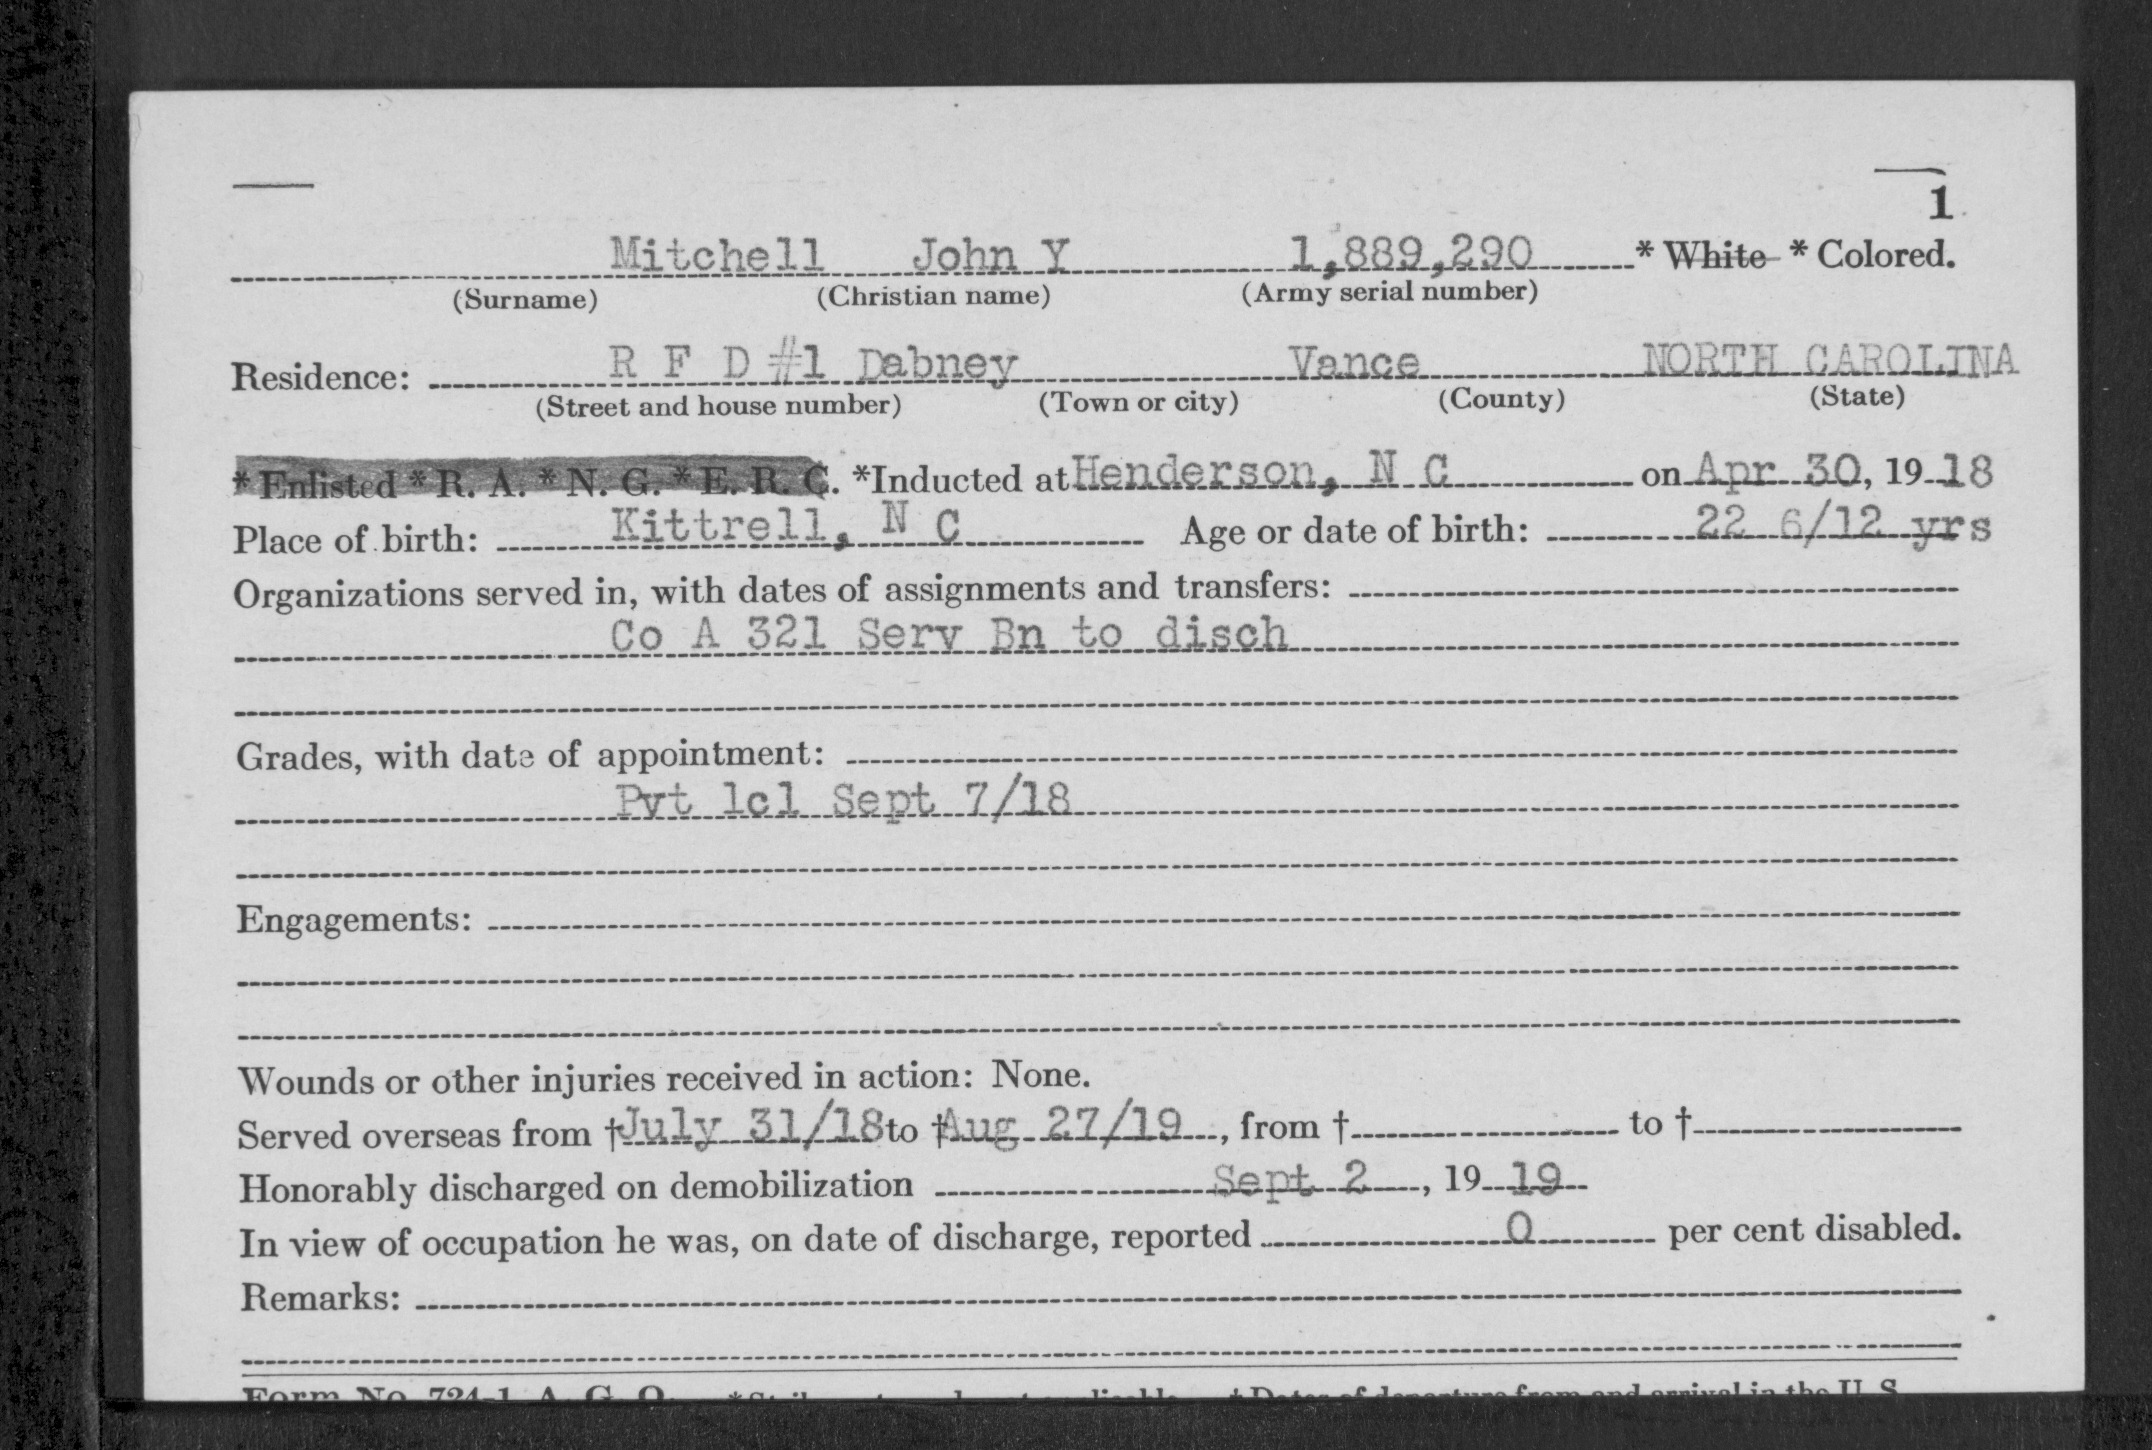 1
Mitchell John Y 1,889,290 * White * Colored.
(Surname) (Christian name) (Army serial number)
Residence: R F D #1 Dabney Vance NORTH CAROLINA
(Street and house number) (Town or city) (County) (State)
* Enlisted * R. A. * N. G. * E. R. C. *Inducted at Henderson, N C on Apr 30, 19 18
Place of birth: Kittrell, N C Age or date of birth: 22 6/12 yrs
Organizations served in, with dates of assignments and transfers:
Co A 321 Serv Bn to disch
Grades, with date of appointment:
Pvt 1cl Sept 7/18
Engagements:
Wounds or other injuries received in action: None.
Served overseas from †July 31/18 to †Aug 27/19, from † to †
Honorably discharged on demobilization Sept 2, 19 19
In view of occupation he was, on date of discharge, reported 0 per cent disabled.
Remarks:
Form No. 724-1, A. G. O. † Dates of departure from and arrival in the U. S.